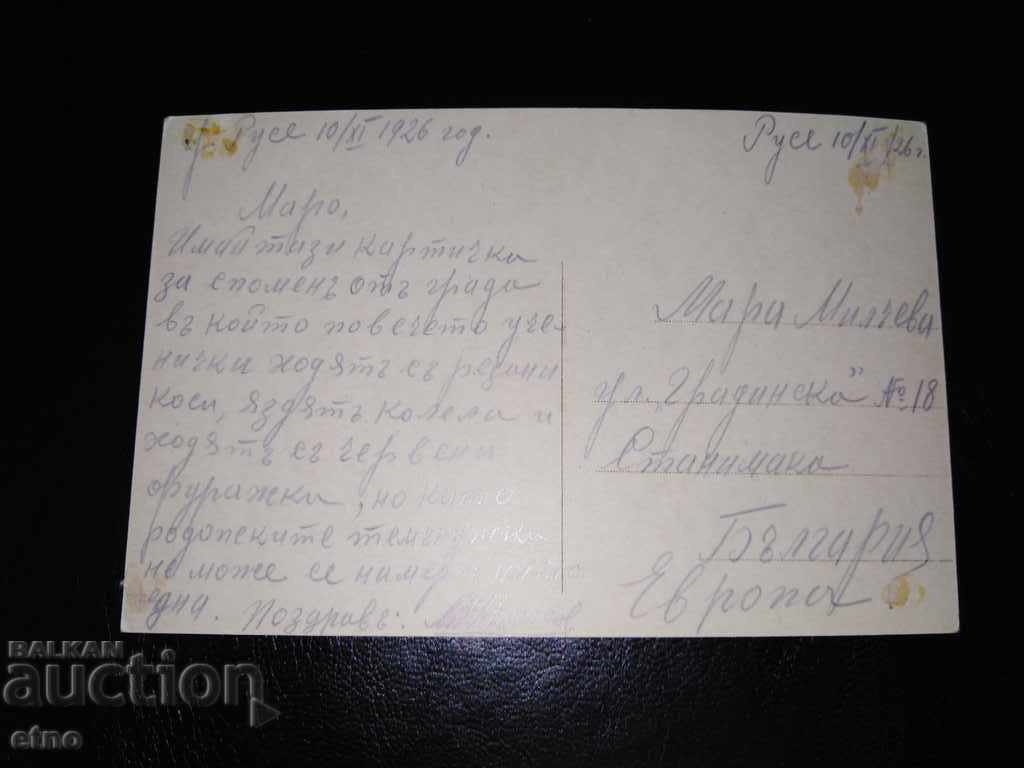 гр. Русе 10/XI 1926 год.
Маро,
Имай тази картичка
за споменъ отъ града
въ който повечето уче-
нички ходятъ съ рязани
коси, яздятъ колела и
ходятъ съ червени
фуражки, но като
родопските
не може се намери
една. Поздравъ:
Русе 10/XI/26 г.
Мара Милчева
ул. „Градинска" № 18
Станимака
България
Европа
BALKAN
auction
etno